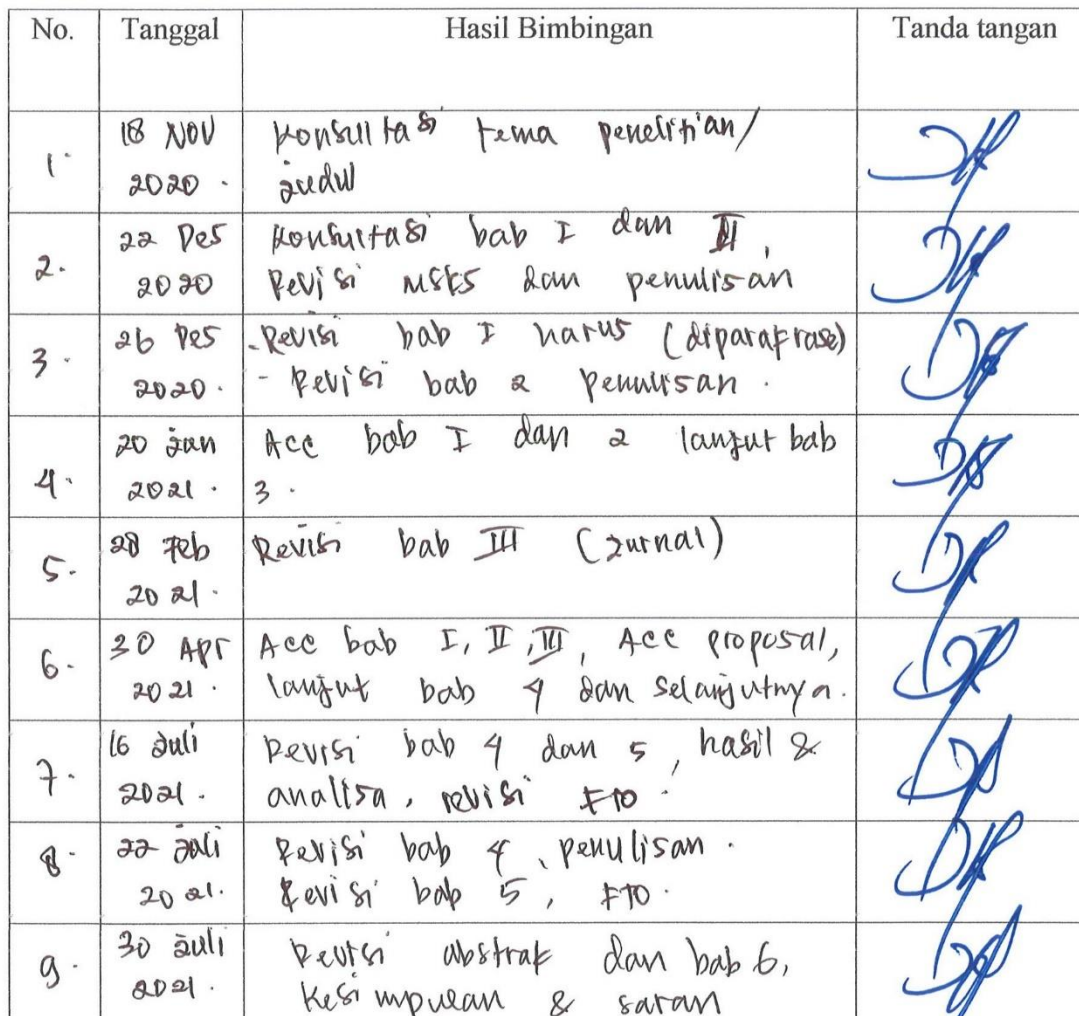 No. Tanggal Hasil Bimbingan Tanda tangan
1. 18 NOV 2020. Konsultasi tema penelitian/
judul
2. 22 Des 2020 Konsultasi bab I dan II,
Revisi MSKS dan penulisan
3. 26 Des 2020. - Revisi bab I harus (diparafrase)
- Revisi bab 2 penulisan.
4. 20 Jan 2021. Acc bab I dan 2 lanjut bab
3.
5. 28 Feb 2021. Revisi bab III (Jurnal)
6. 30 Apr 2021. Acc bab I, II, III, Acc proposal,
lanjut bab 4 dan selanjutnya.
7. 16 Juli 2021. Revisi bab 4 dan 5, hasil &
analisa, revisi FTO.
8. 22 Juli 2021. Revisi bab 4, penulisan.
Revisi bab 5, FTO.
9. 30 Juli 2021. Revisi abstrak dan bab 6,
Kesimpulan & saran